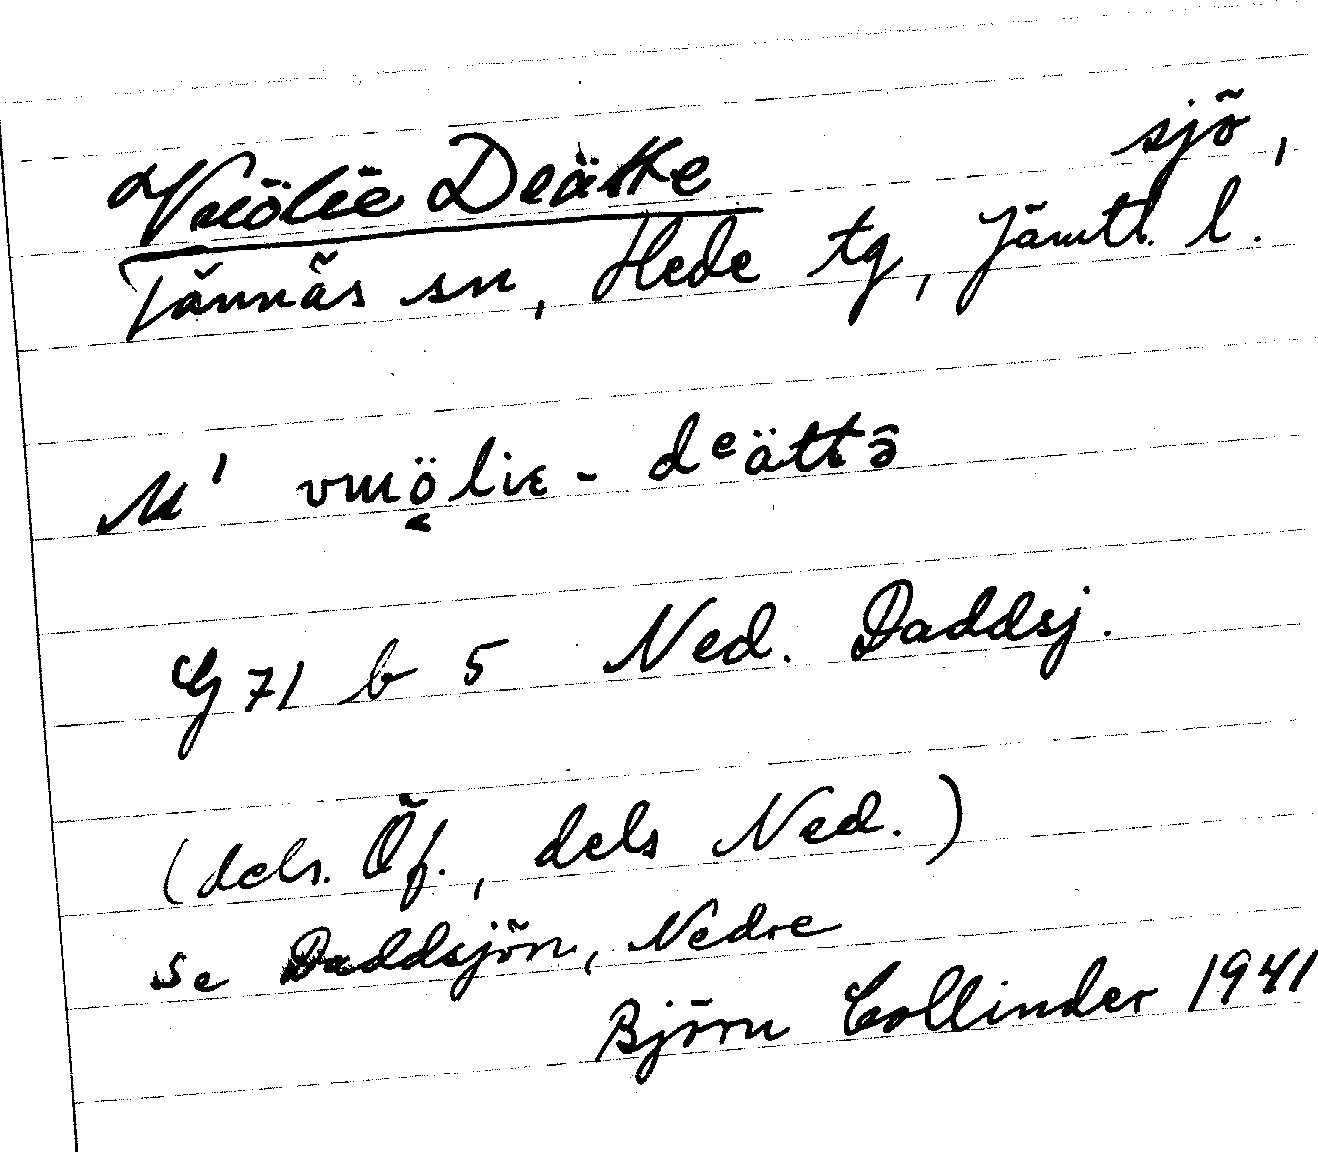 Vuölie Deätte sjö,
Tännäs sn, Hede tg, Jämtl. l.
M' vuɯölie - dᵉättə̑
G 71 b 5 Ned. Daddsj.
(dels. Öf., dels Ned.)
se Daddsjön, Nedre
Björn Collinder 1941